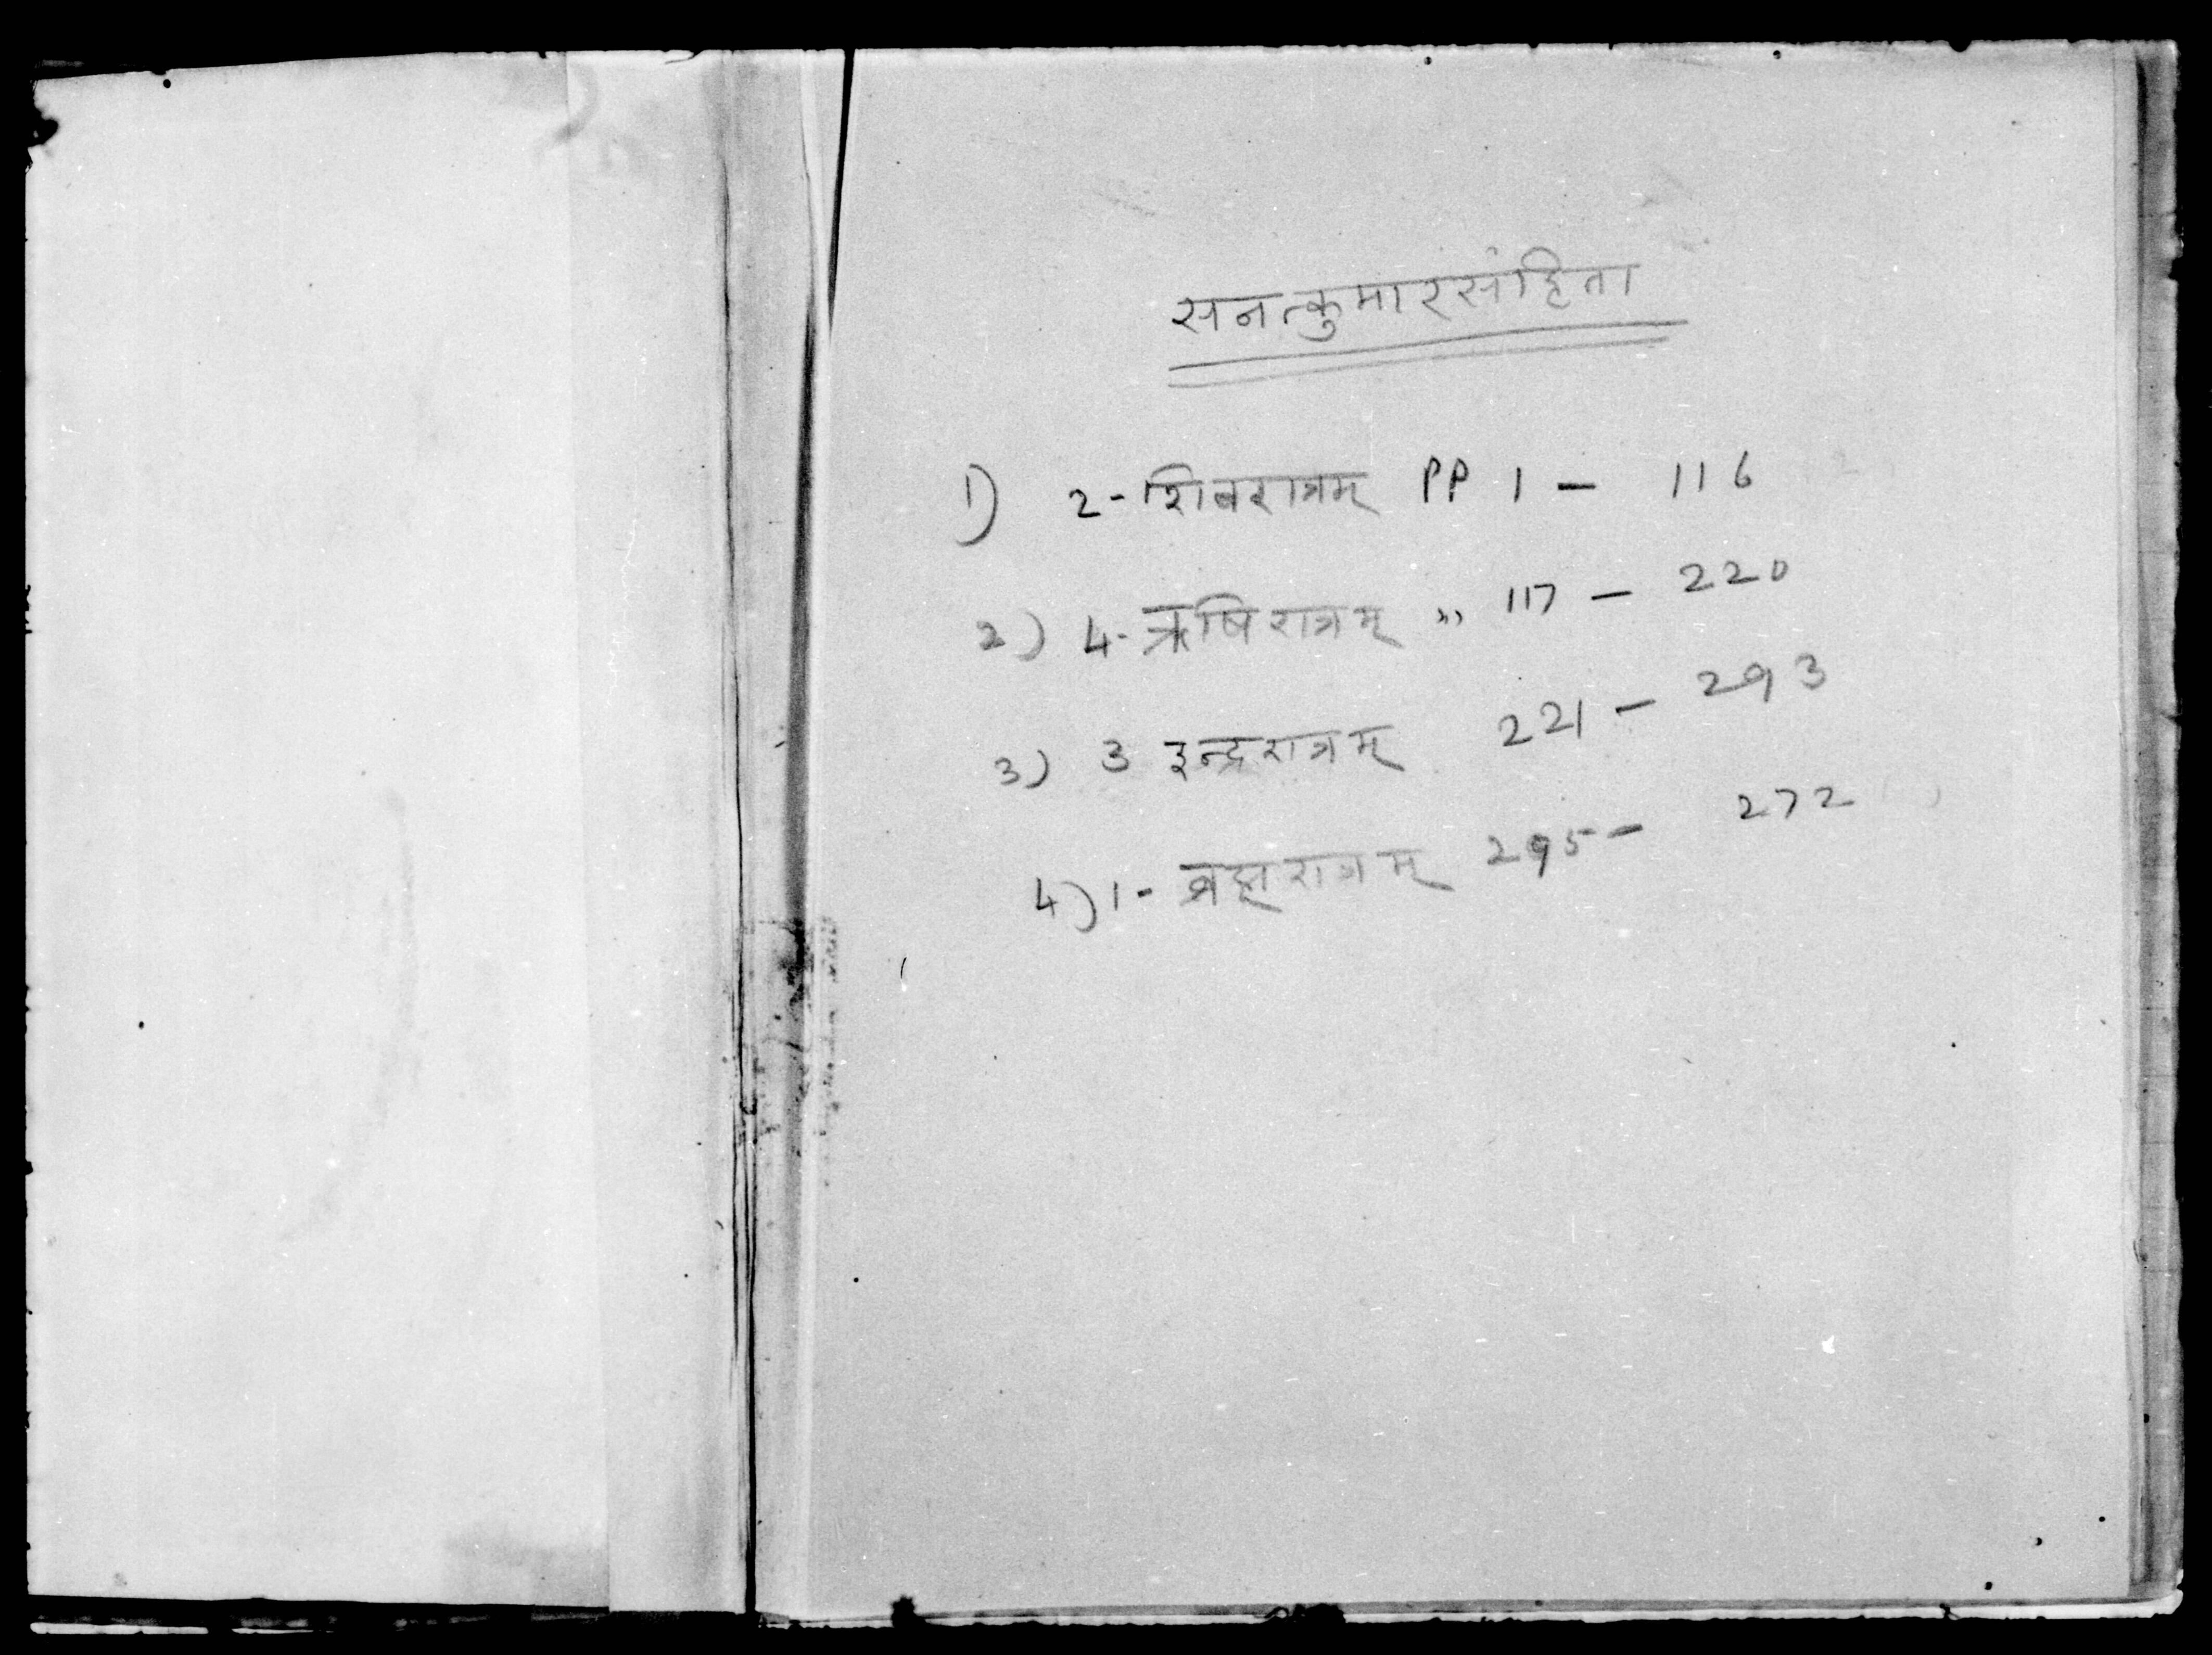 सनत्कुमारसंहिता
1) 2-शिवरात्रम् PP 1 - 116
2) 4-ऋषिरात्रम् " 117 - 220
3) 3 इन्द्ररात्रम् 221 - 293
4) 1- ब्रह्मरात्रम् 295 - 272